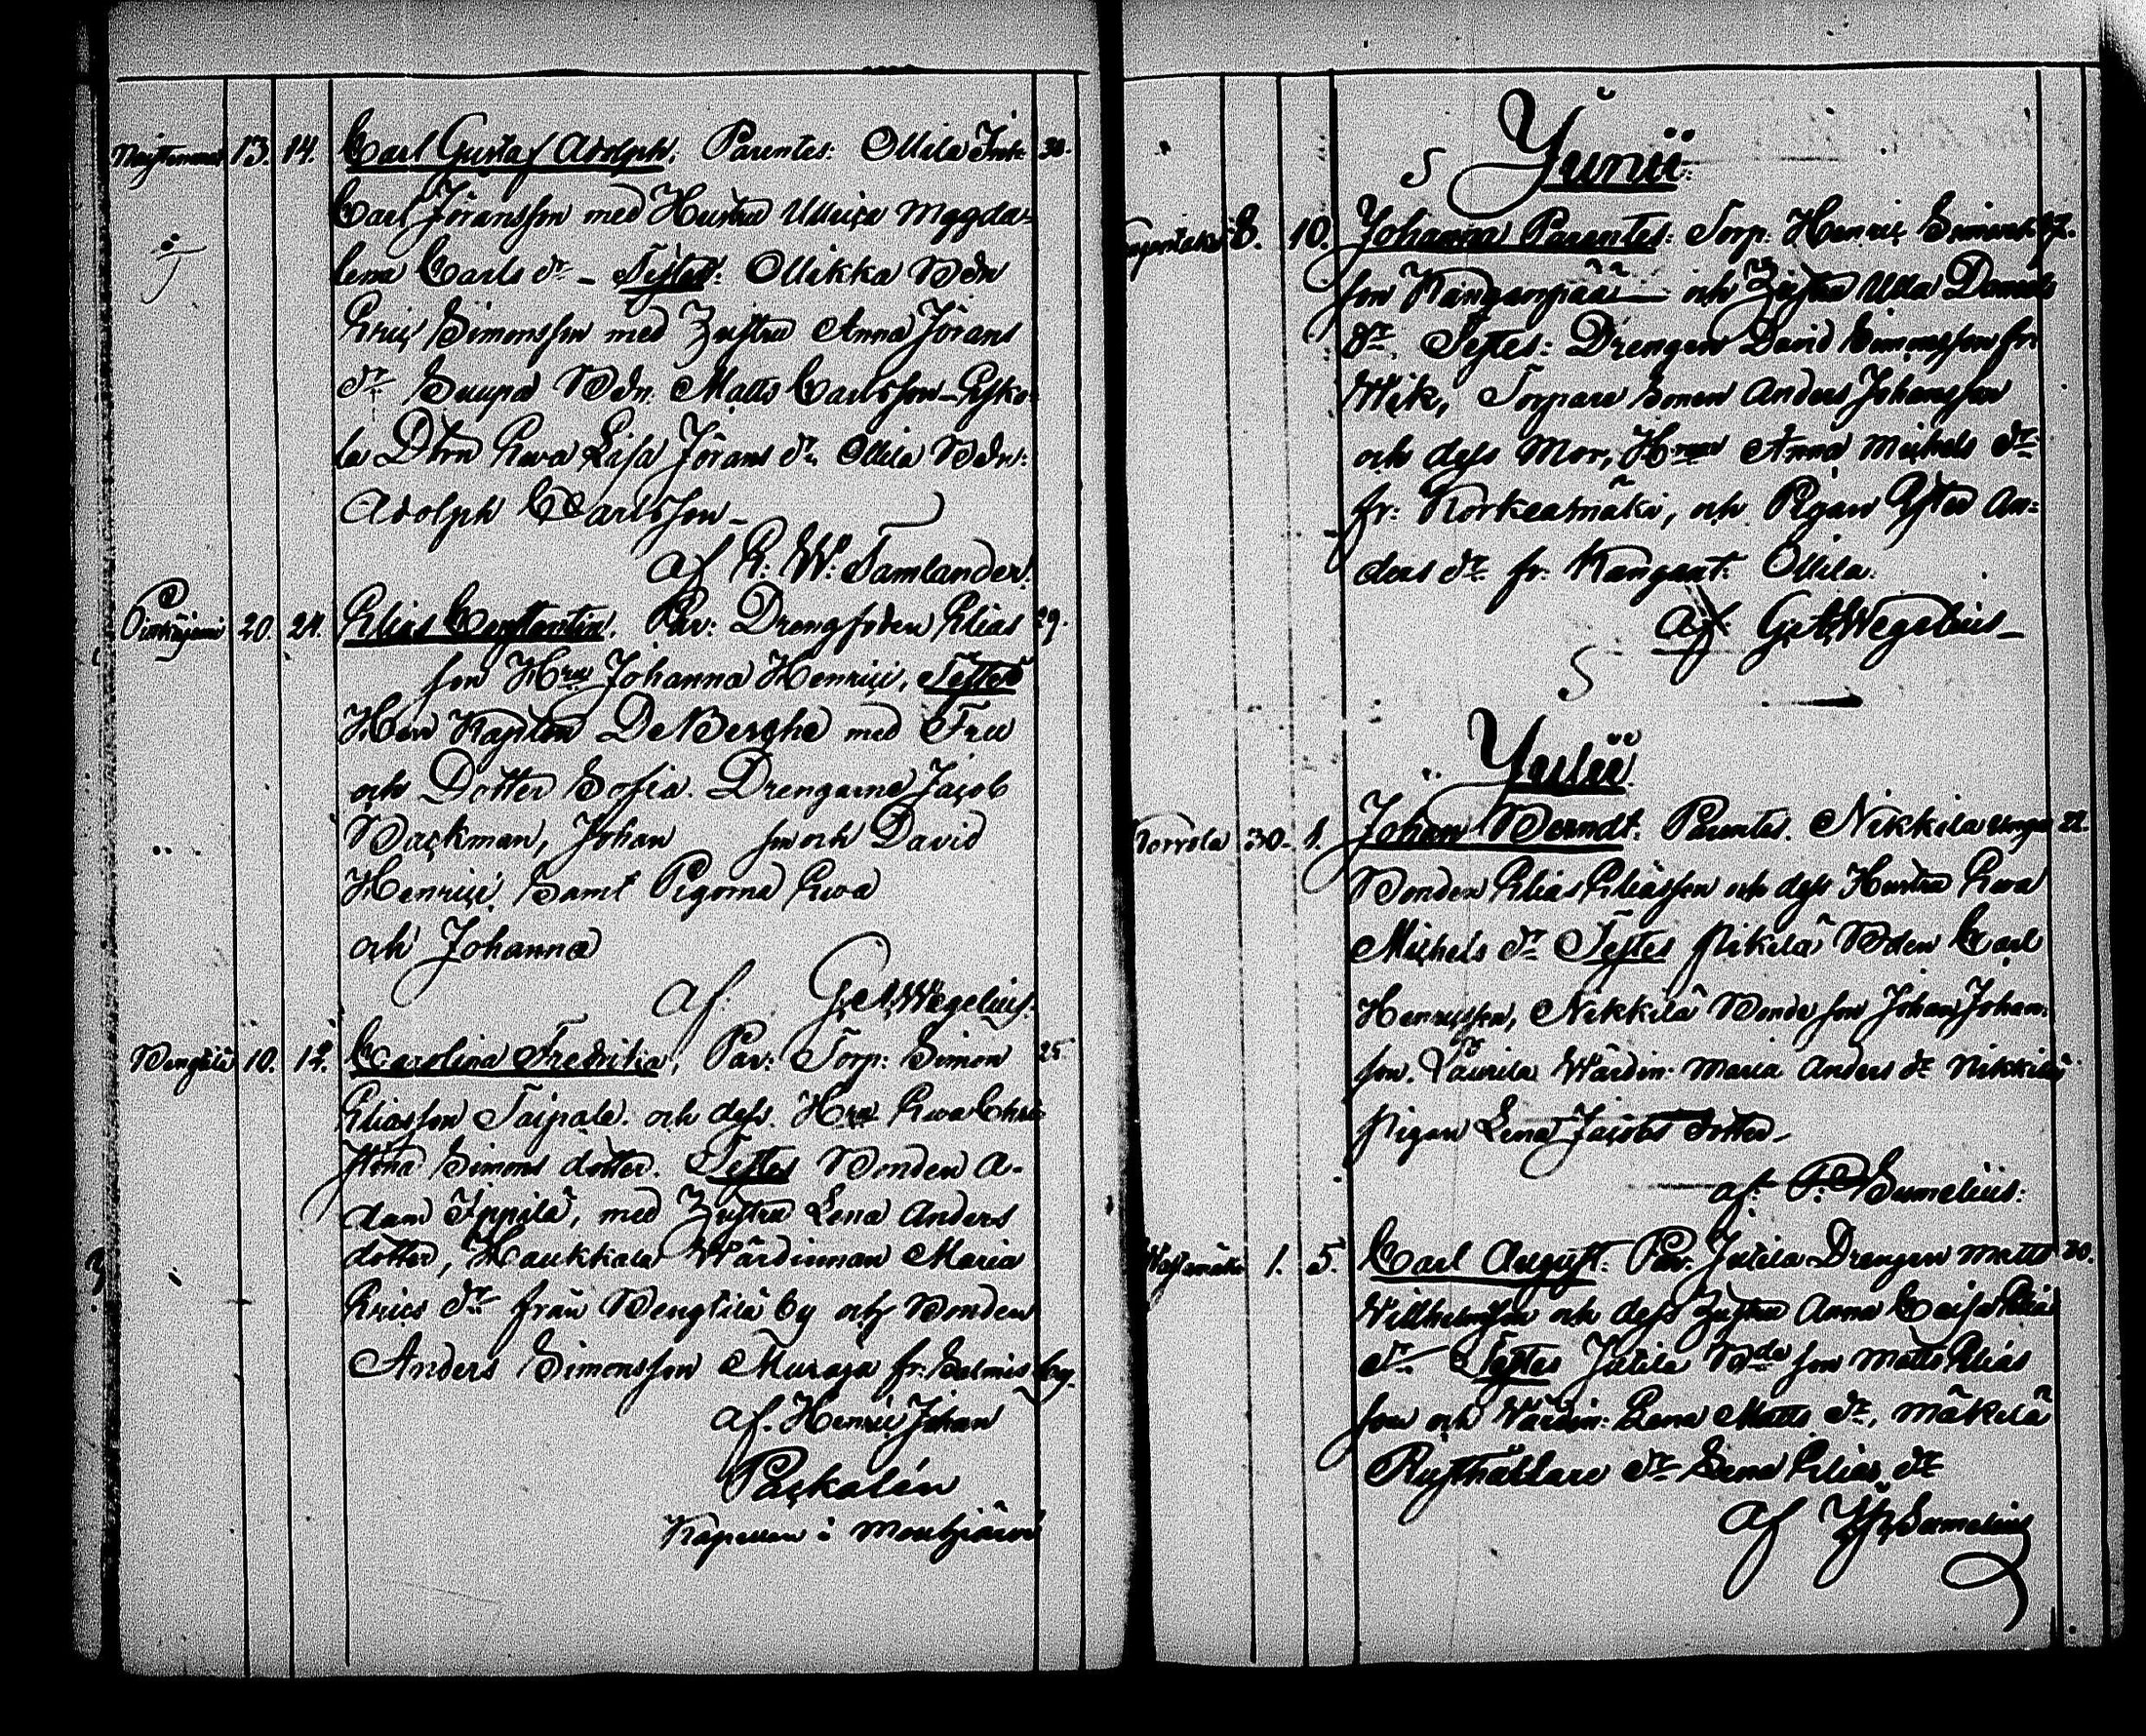 13. 14. Carl Gustaf Adolph. Parentes: Ollila Inh: 30.
Carl Jöransson med Hustru Ulrica Magda-
lena Carls dr – Testes: Ollikka Bdn
Eric Simonsson med Hustru Anna Jörans
dr Suupa Bdn Matts Carlsson – Esko-
la Dtrn Ewa Lisa Jörans dr Ollila Bdn:
Adolph Carlsson –
af E: W: Samlander.
20. 24. Elias Constantin. Par: Drengsoden Elias 29.
son Hru Johanna Henrici, Testes
Herr Kapten De Berghe med Fru
och Dotter Sofia. Drengarne Jacob
Backman, Johan son och David
Henrici, Samt Pigorna Ewa
och Johanna
af: G: A: Wegelius.
Bengtilä 10. 12. Carolina Fredrika, Par: Torp: Simon 25.
Eliasson Taipale. och dess Hru Ewa Chri
stina Simons dotter. Testes Bonden A-
dam Ippilä, med Hustru Lena Anders
dotter, Haukkala Wärdinnan Maria
Erics dr från Bengtilä by och Bonden
Anders Simonsson Muraja fr: Salmis by.
af. Henric Johan
Packalén
Kapellan i Mouhijärvi
Junii
8. 10. Johanna Parentes: Torp: Henric Simons 27.
son Kangaspää och Hustru Ulla Daniels
dr. Testes: Drengen David Simonsson fr:
Wik, Torpare Sonen Anders Johansson
och dess Mor, Hrun Anna Michels dr
fr: Korkeamäki, och Pigan Ester An-
ders dr fr: Kangant: Ollila.
af G: A: Wegelius –
Julii
Torvola 30. 1. Johan Berndt. Parentes. Nikkilä unge 22.
Bonden Elias Eliasson och dess Hustru Ewa
Michels dr Testes Nikilä Bden Carl
Henricsson, Nikkilä Bonde son Johan Johans
son. Laurila Wärdin: Maria Anders dr Nikkilä
pigan Lena Jacobs dotter –
af Sumelius:
1. 5. Carl August. Par: Jutila Drengen Matts 30.
Willhelmsson och dess Hustru Anna Caisa Elias
dr Testes Jutila Bde son Matts Elias
son och Wärdin: Lena Matts dr, Mäkilä
Rusthållare dr Lena Elias dr
af Sumelius